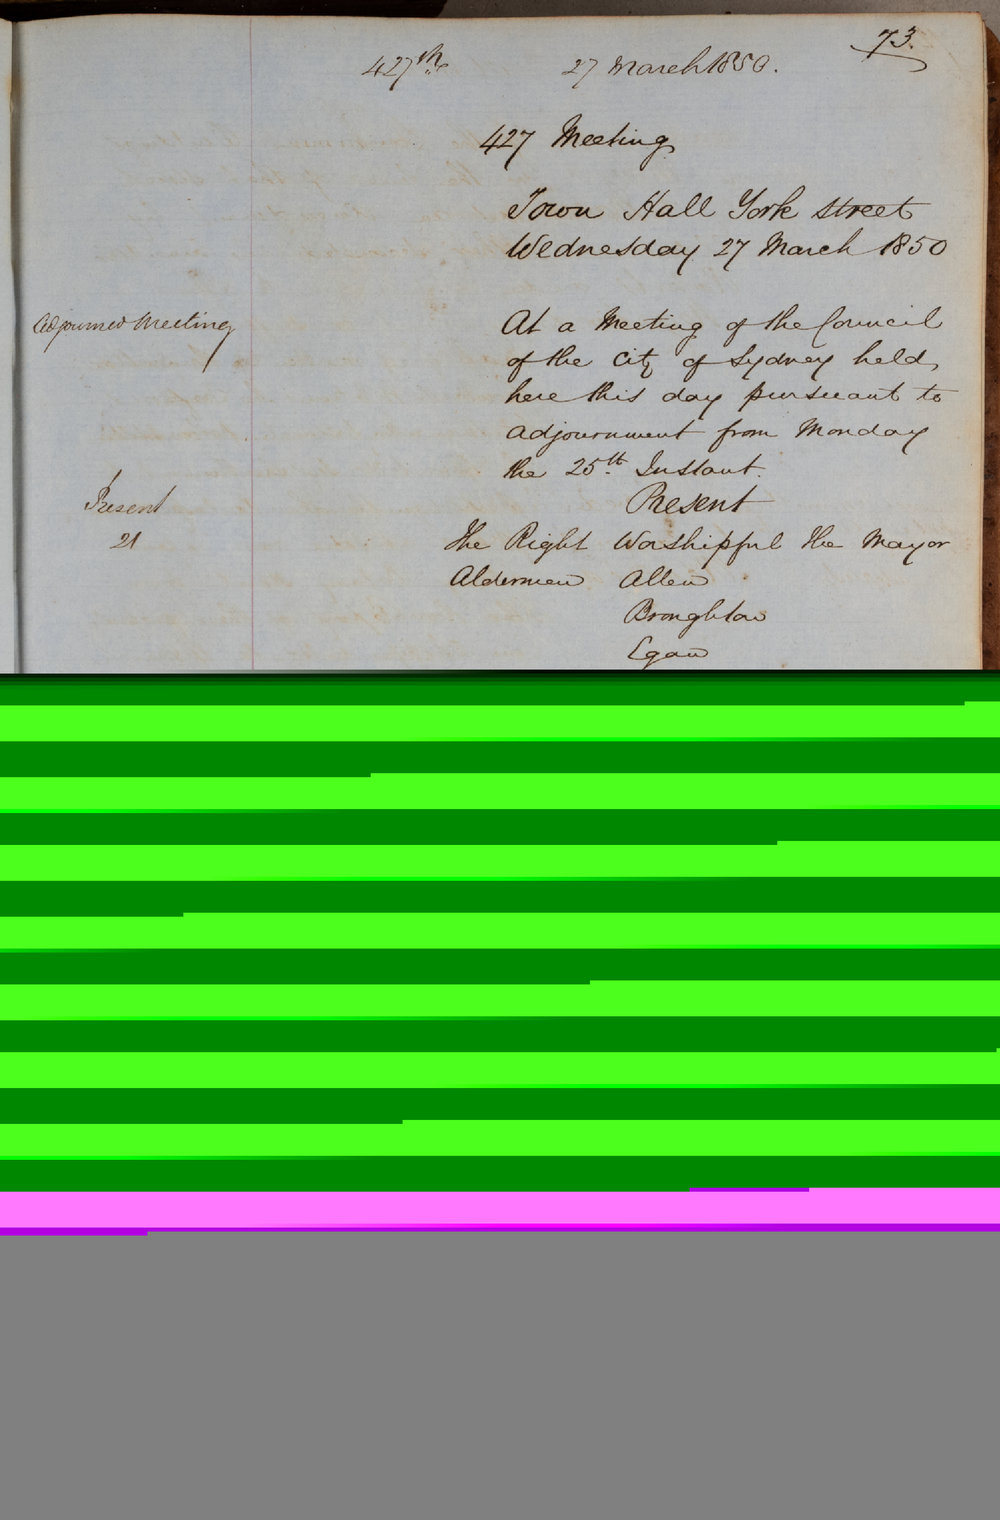 73.
427th 27 March 1850.
427 Meeting
Town Hall York street
Wednesday 27 March 1850
Adjourned Meeting
At a Meeting of the Council
of the City of Sydney held
here this day pursuant to
adjournment from Monday
the 25th Instant.
Present
Present
21
The Right Worshipful the Mayor
Aldermen Allen
Broughton
Egan